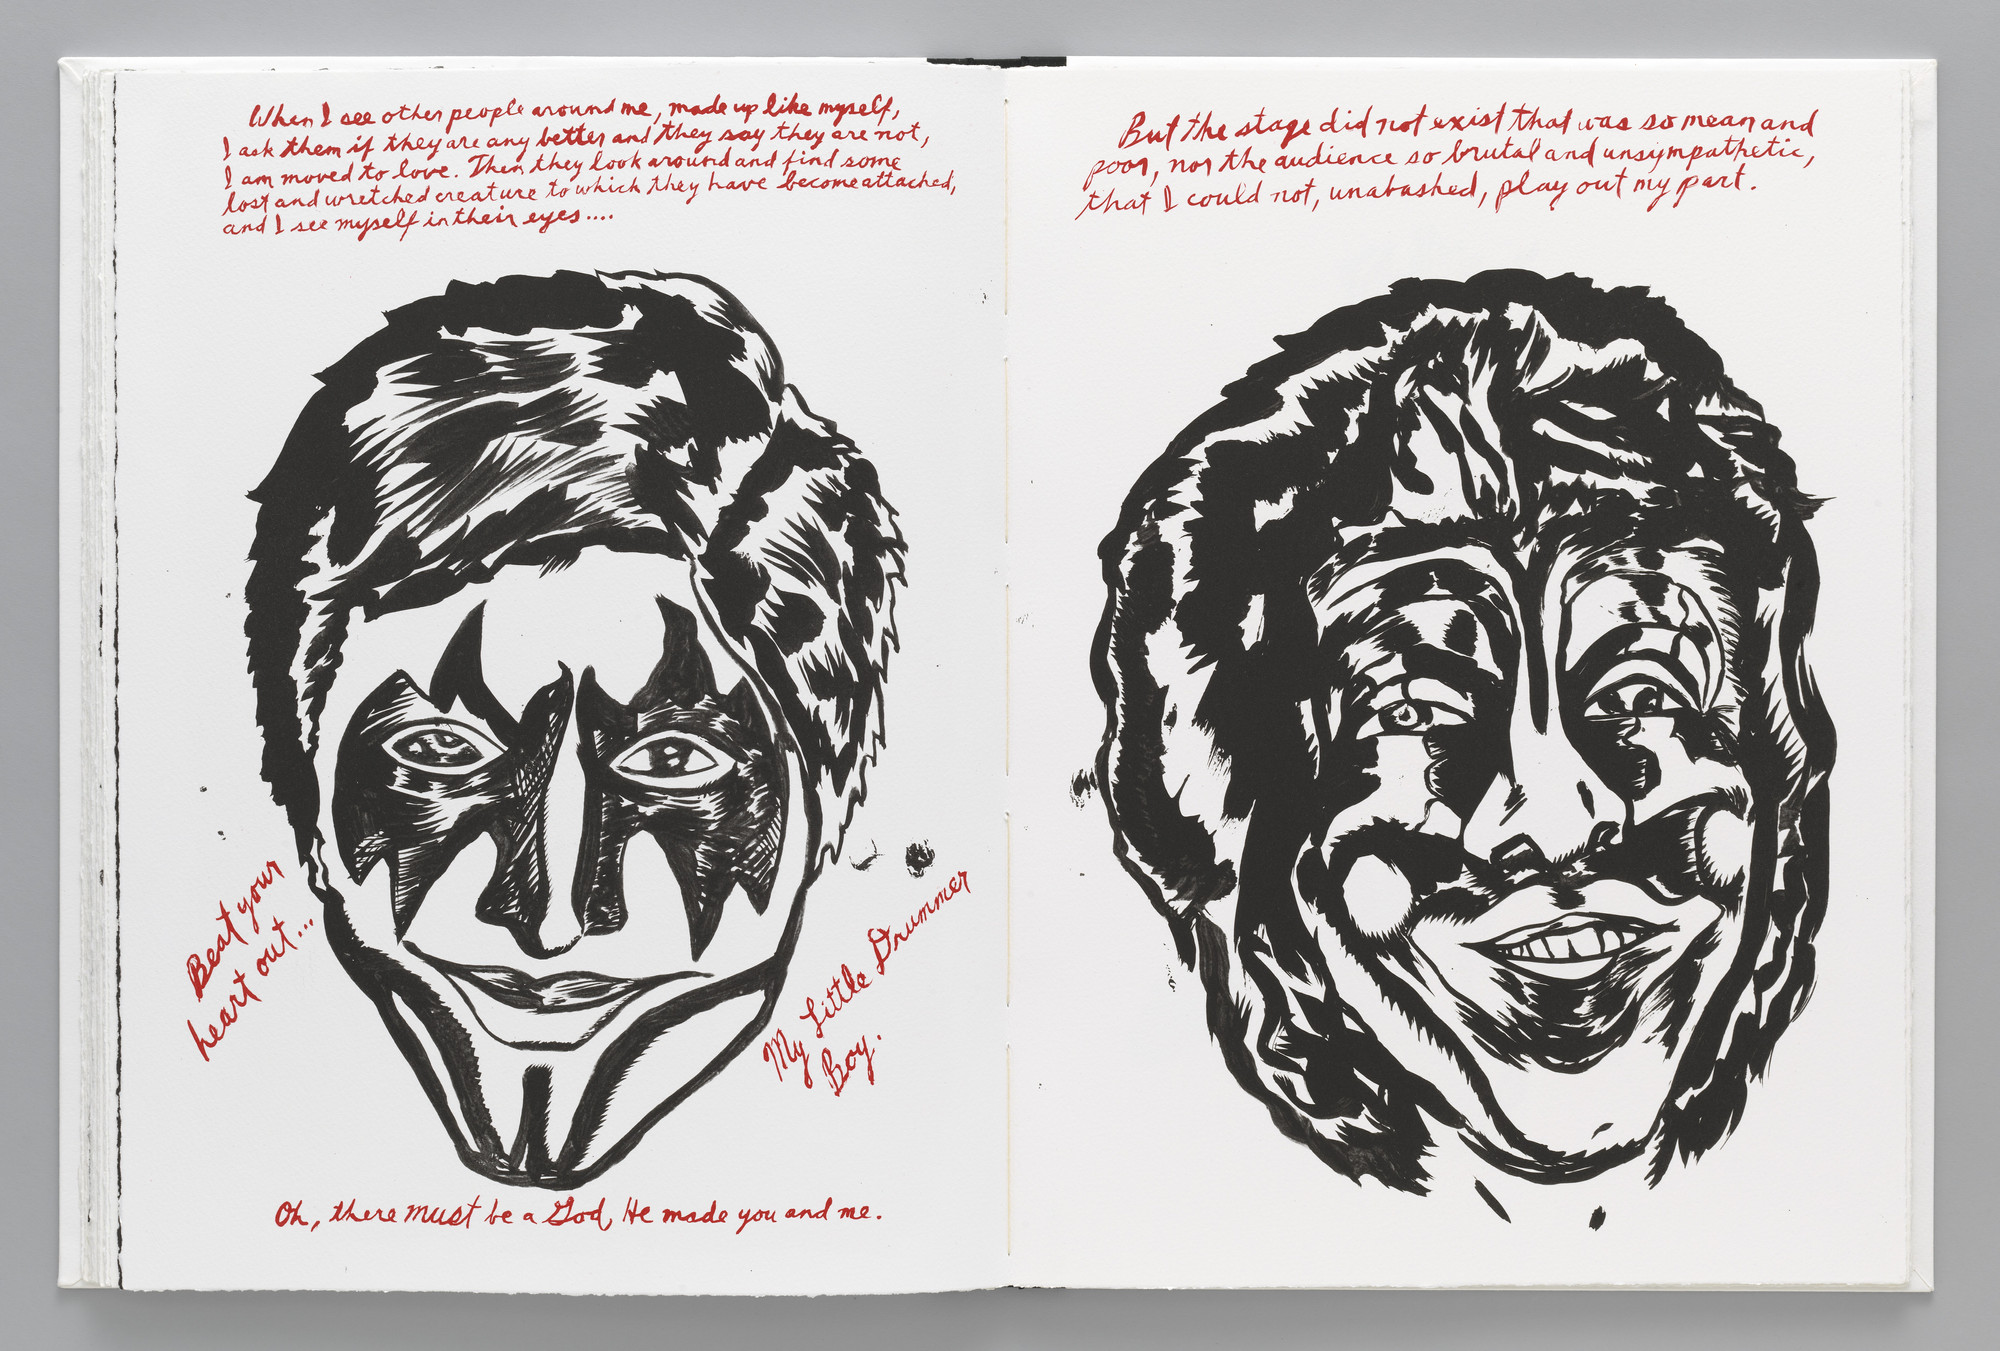 When I see other people around me, made up like myself,
I ask them if they are any better and they say they are not,
I am moved to love. Then they look around and find some
lost and wretched creature to which they have become attached,
and I see myself in their eyes....
Beat your
heart out...
My Little Drummer
Boy.
Oh, there must be a God, He made you and me.
But the stage did not exist that was so mean and
poor, nor the audience so brutal and unsympathetic,
that I could not, unabashed, play out my part.